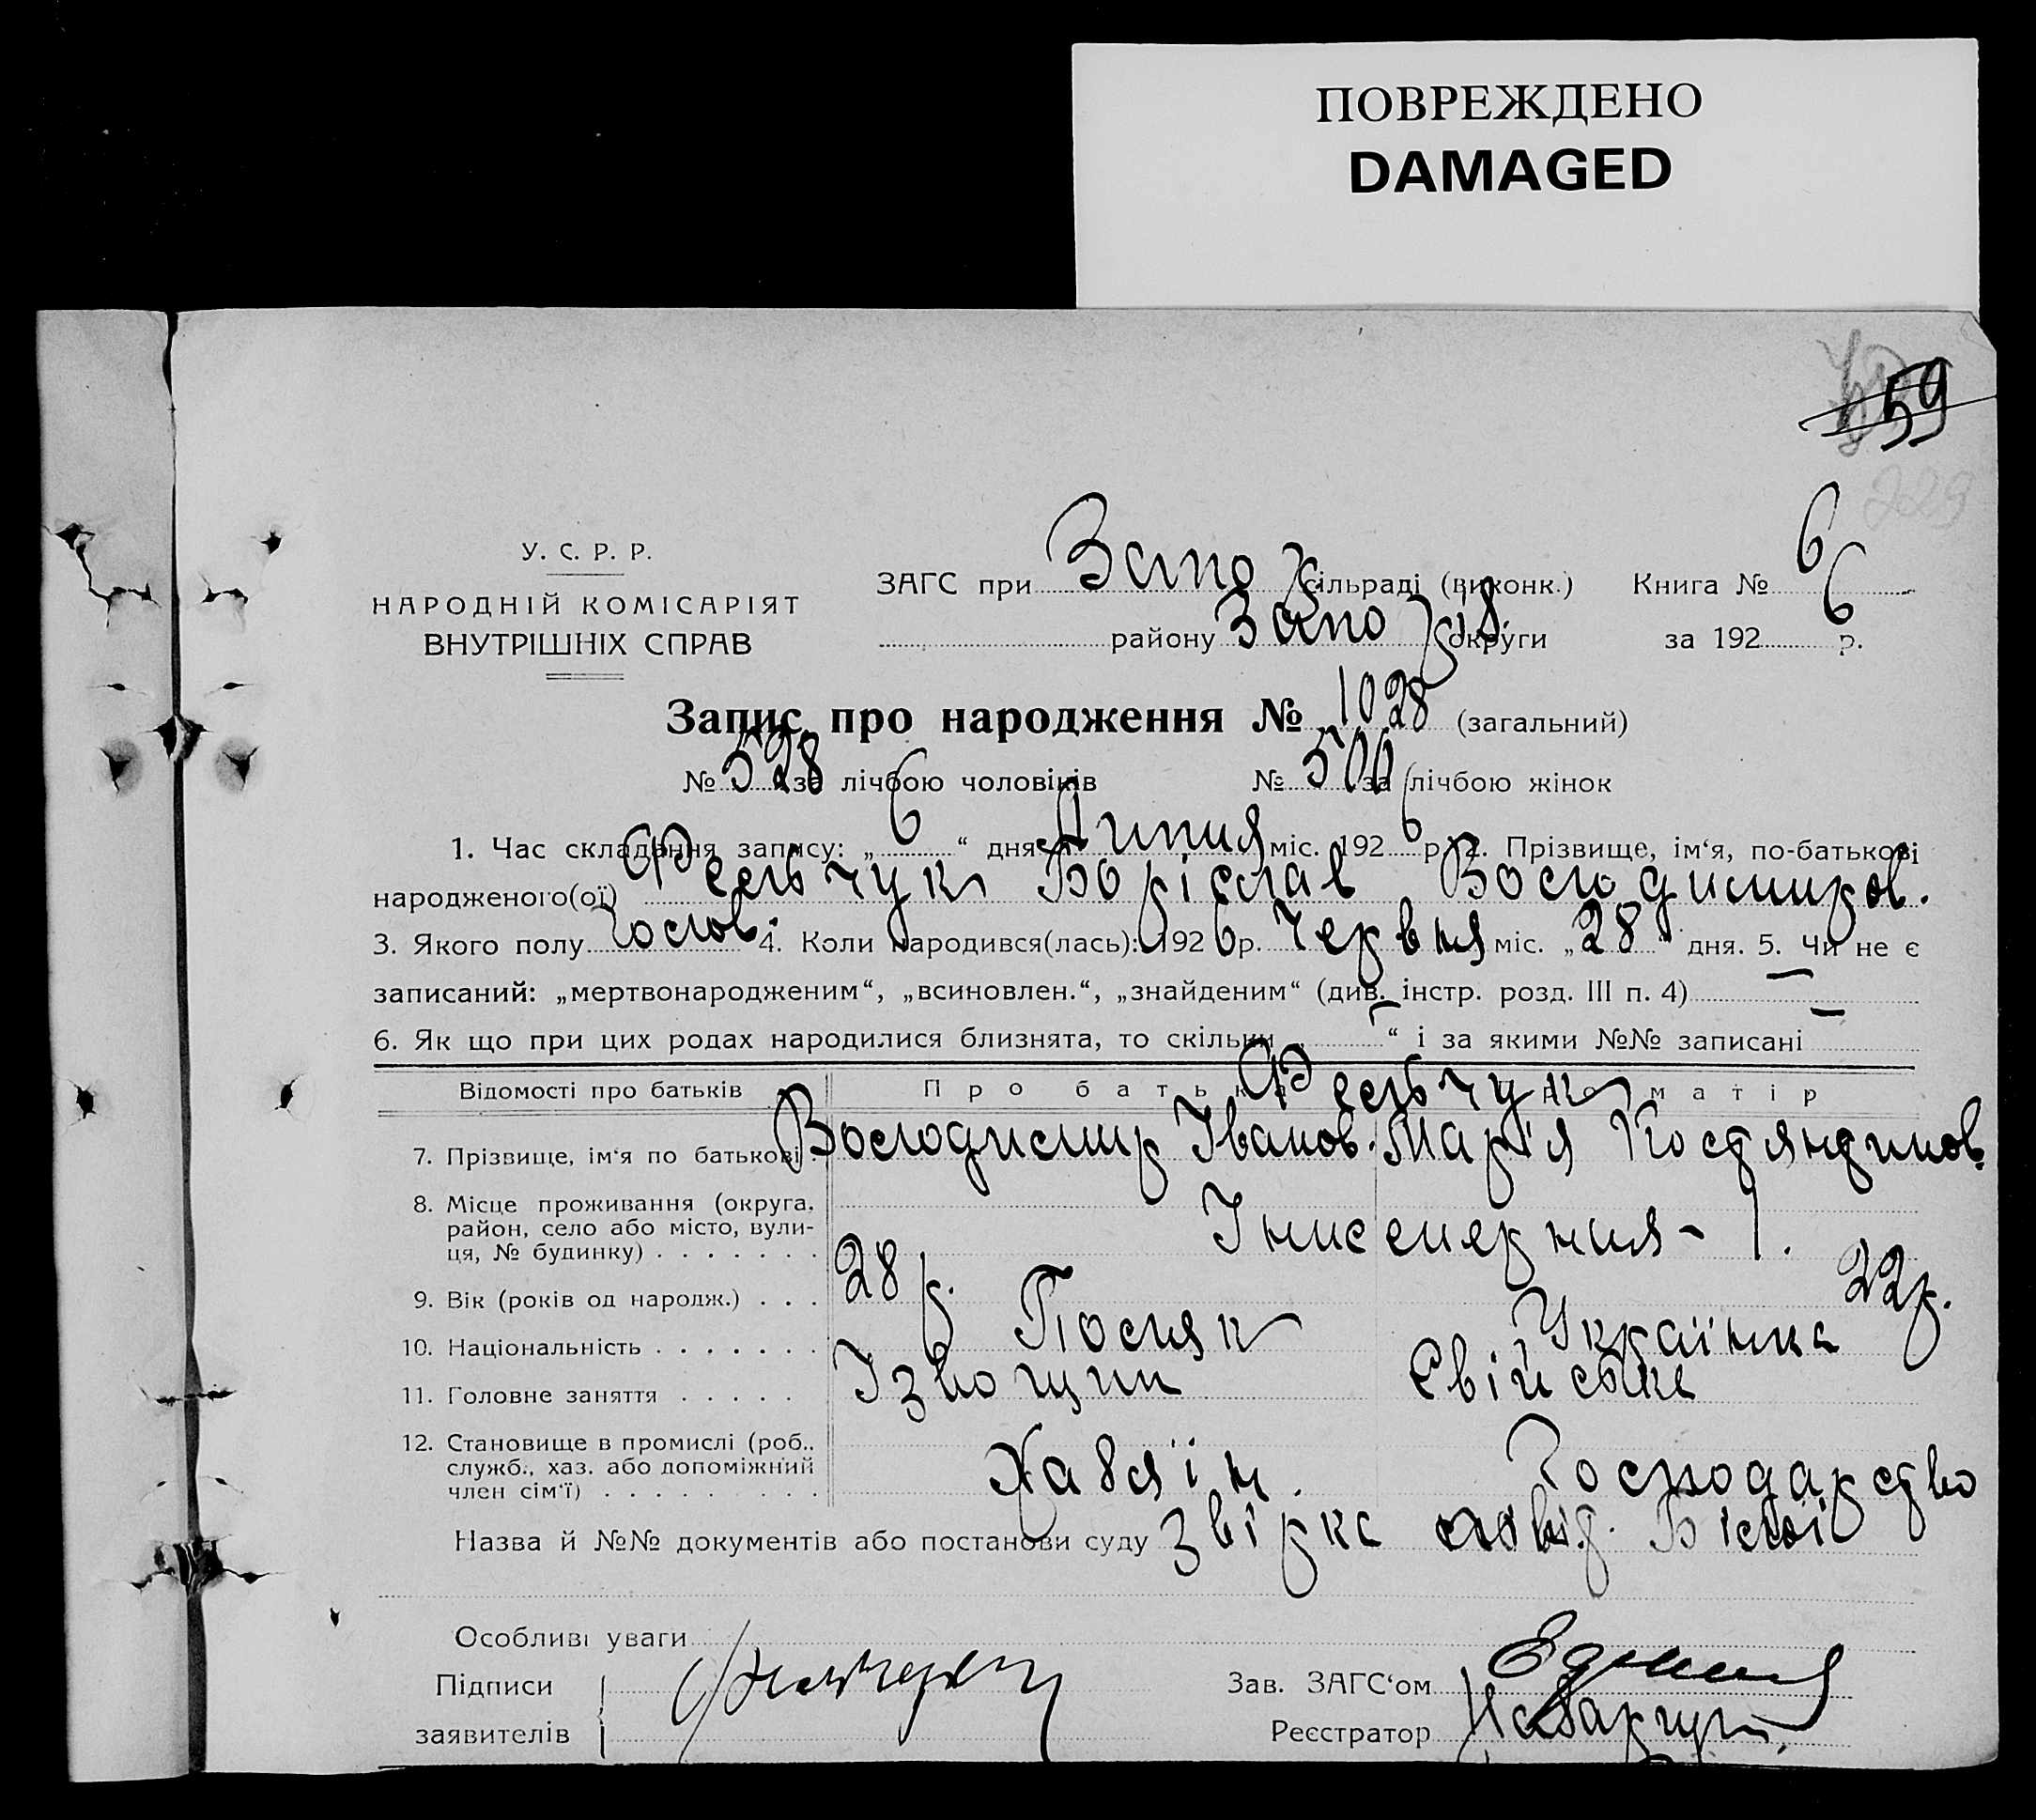 ПОВРЕЖДЕНО
DAMAGED
59
229
У. С. Р. Р.
НАРОДНІЙ КОМІСАРІЯТ
ВНУТРІШНІХ СПРАВ
ЗАГС при Запо сільраді (виконк.) Книга № 6
району Запо округи за 1926 р.
Запис про народження № 1028 (загальний)
№ 528 за лічбою чоловіків № 500 за лічбою жінок
1. Час складання запису: „6“ дня Липня міс. 1926 р. 2. Прізвище, ім‘я, по-батькові
народженого(ої) Фельчук Борісслав Володимиров.
3. Якого полу чолов. 4. Коли народився(лась): 1926 р. Червня міс. „28“ дня. 5. Чи не є
записаний: „мертвонародженим“, „всиновлен.“, „знайденим“ (див. інстр. розд. III п. 4) —
6. Як що при цих родах народилися близнята, то скільки „—“ і за якими №№ записані —
Відомості про батьків Про батька Фельчук Про матір
7. Прізвище, ім‘я по батькові Володимир Іванов. Марія Костянтинов.
8. Місце проживання (округа,
район, село або місто, вули-
ця, № будинку) . . . . . . . Інженерния - 1.
9. Вік (років од народж.) . . . 28 р. 22 р.
10. Національність . . . . . . . Поляк Українка
11. Головне заняття . . . . . Ізвощик Свійське
12. Становище в промислі (роб.,
служб., хаз. або допоміжний
член сім‘ї) . . . . . . . . . Хазяїн. Господарство
Назва й №№ документів або постанови суду звірка
Особливі уваги
Підписи
заявителів
Зав. ЗАГС‘ом
Реєстратор